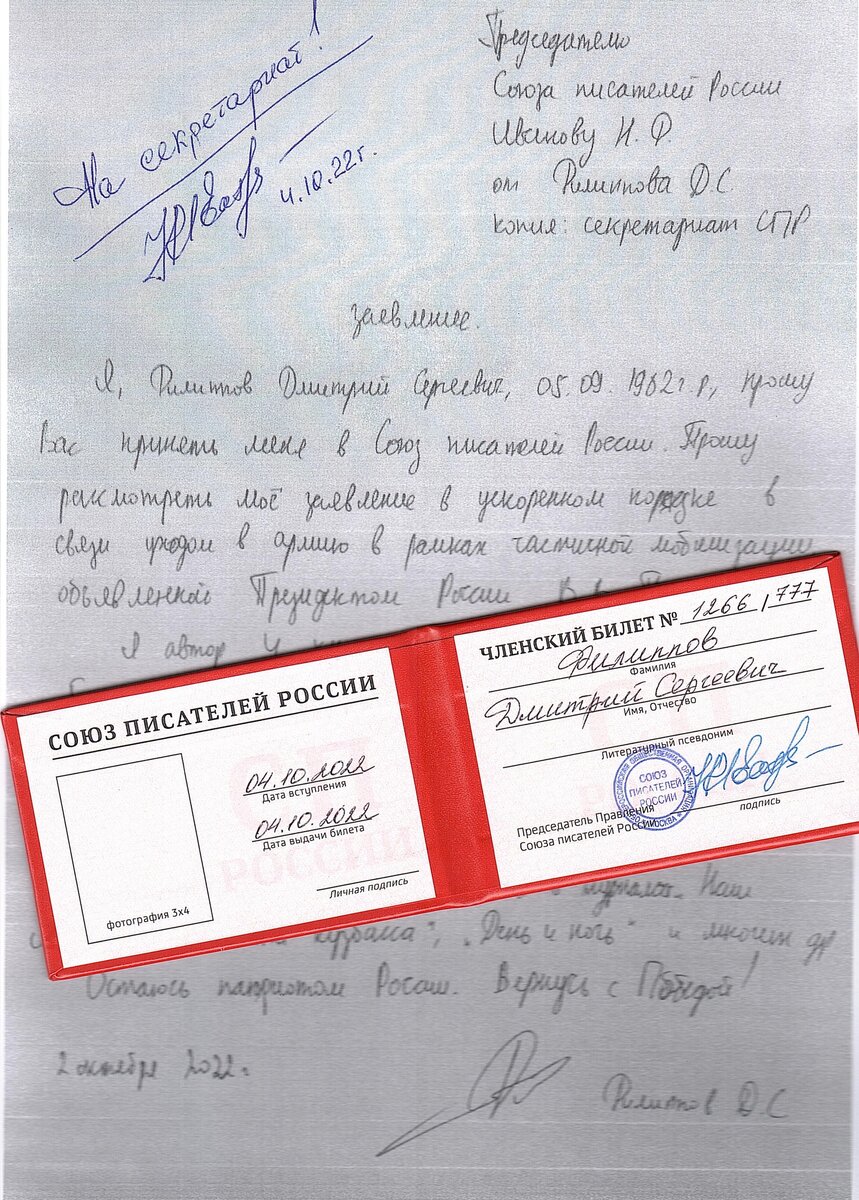 На секретариат!
4.10.22г.
Председателю
Союза писателей России
Иванову Н. Ф.
от Филиппова Д.С.
копия: секретариат СПР
заявление.
Я, Филиппов Дмитрий Сергеевич, 05.09.1982г.р, прошу
Вас принять меня в Союз писателей России. Прошу
рассмотреть моё заявление в ускоренном порядке в
связи уходом в армию в рамках частичной мобилизации
объявленной Президентом России В.В
Я автор 4
СОЮЗ ПИСАТЕЛЕЙ РОССИИ
04.10.2022
Дата вступления
04.10.2022
Дата выдачи билета
РОССИИ
Личная подпись
фотография 3x4
ЧЛЕНСКИЙ БИЛЕТ № 1266/777
Филиппов
Фамилия
Дмитрий Сергеевич
Имя, Отчество
Литературный псевдоним
СОЮЗ
ПИСАТЕЛЕЙ
РОССИИ
МОСКВА
подпись
Председатель Правления
Союза писателей России
в журналах Наш
"День и ночь" и многих др
Остаюсь патриотом России. Вернусь с Победой!
2 октября 2022г.
Филиппов Д.С